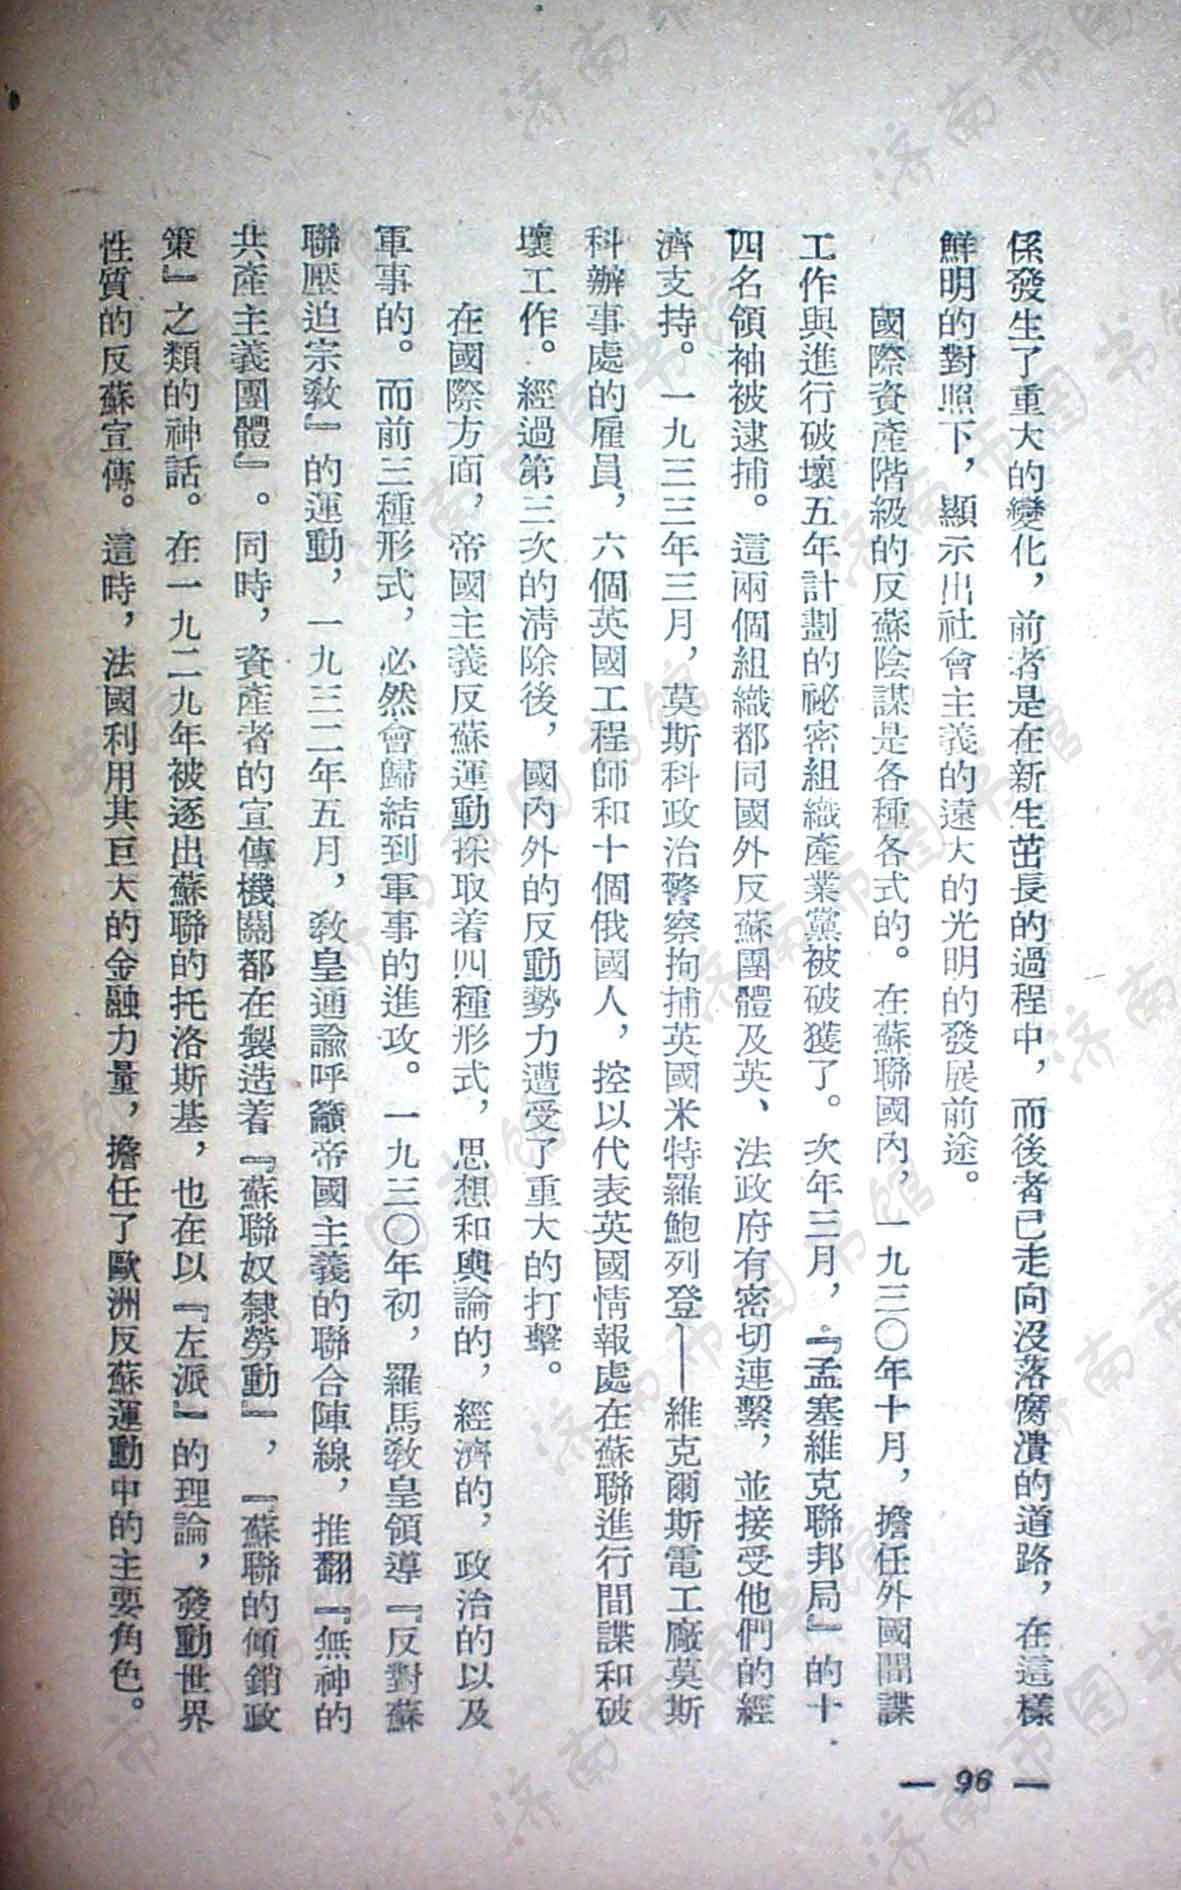 係發生了重大的變化，前者是在新生茁長的過程中，而後者已走向沒落腐潰的道路，在這樣
鮮明的對照下，顯示出社會主義的遠大的光明的發展前途。
國際資產階級的反蘇陰謀是各種各式的。在蘇聯國內，一九三〇年十月，擔任外國間諜
工作與進行破壞五年計劃的祕密組織產業黨被破獲了。次年三月，『孟塞維克聯邦局』的十
四名領袖被逮捕。這兩個組織都同國外反蘇團體及英、法政府有密切連繫，並接受他們的經
濟支持。一九三三年三月，莫斯科政治警察拘捕英國米特羅鮑列登——維克爾斯電工廠莫斯
科辦事處的雇員，六個英國工程師和十個俄國人，控以代表英國情報處在蘇聯進行間諜和破
壞工作。經過第三次的清除後，國內外的反動勢力遭受了重大的打擊。
在國際方面，帝國主義反蘇運動採取着四種形式，思想和輿論的，經濟的，政治的以及
軍事的。而前三種形式，必然會歸結到軍事的進攻。一九三〇年初，羅馬敎皇領導『反對蘇
聯壓迫宗敎』的運動，一九三二年五月，敎皇通諭呼籲帝國主義的聯合陣線，推翻『無神的
共產主義團體』。同時，資產者的宣傳機關都在製造着『蘇聯奴隸勞動』，『蘇聯的傾銷政
策』之類的神話。在一九二九年被逐出蘇聯的托洛斯基，也在以『左派』的理論，發動世界
性質的反蘇宣傳。這時，法國利用其巨大的金融力量，擔任了歐洲反蘇運動中的主要角色。
— 96 —
济南市图书馆